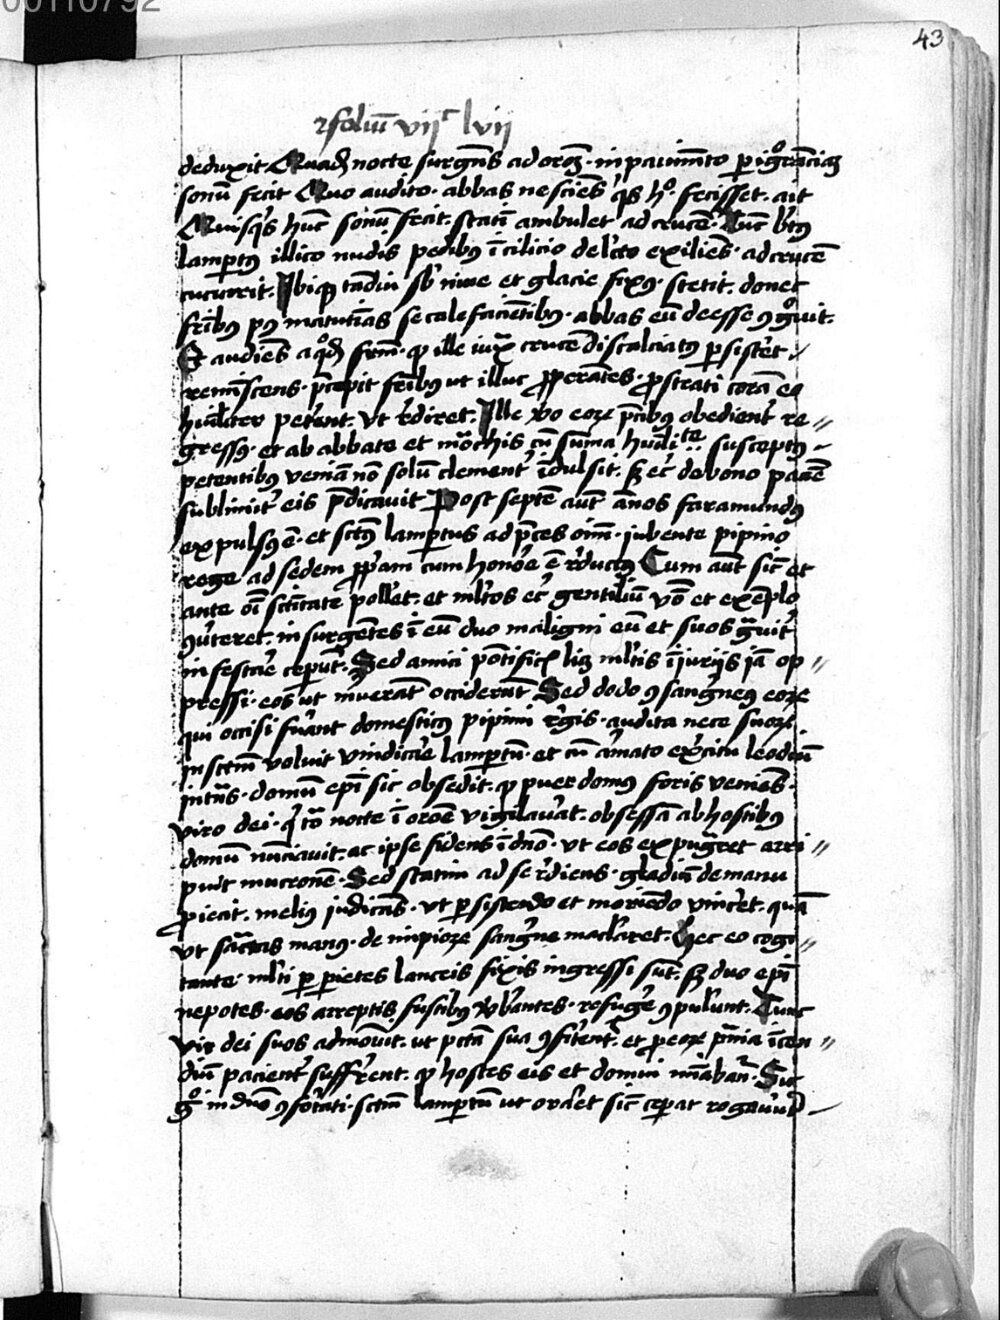 00110792
43
folium vijc lvij
deduxit Quadā nocte surgens ad orōz · in pavimēto per ignorāciaȝ
sonū fecit Quo audito · abbas nesciēs quis hoc fecisset · ait
Quisquis hūc sonū fecit · statī ambulet ad crucē · Tūc btūs
lampertus illico nudis pedibus ī cilicio de lecto exiliēs · ad crucē
cucurrit · Ibiqȝ tādiu sub nive et glacie fixus · stetit · donec
fribus post matutinas se calefaciētibus · abbas eū deesse cognovit ·
Et audiēs a quodā frē · qd ille iuxta crucē discalciatus persistet ·
reminiscens · precepit fribus ut illuc properātes · prostrati corā eo
humiliter peterent · ut rediret · Ille vero eorum precibus obedienter re
gressus · et ab abbate et monachis cū summa humilitate susceptus
petentibus veniā nō solū clementer īdulsit · sed etiam de bono pacē
sublimiter eis predicavit Post septē aūt annos faramundus
expulsus ē · et sctūs lampertus ad preces oīm · iubente pipino
rege ad sedem propriam cum honore ē reductus Cum aūt sicut et
ante oī sctitate polleret · et multos etiam gentiliū verbo et exēplo
converteret · insurgentes ī eū duo maligni eū et suos graviter
infestare ceperunt · Sed amici pontificis multis īiuriis iā op
pressi · eos ut meruerant occiderunt Sed dodo consanguineus eorum
qui occisi fuerant domesticus pipini regis · audita nece suorum
in sctum voluit vindicare lampertū · et cū armato exercitu leodiū
intrās · domū epī sic obsedit · qd puer domus foris veniēs ·
viro dei · qui tota nocte ī oratiōe vigilaverat · obsessā ab hostibus
domū nūciavit · ac ipse fidens ī dno · ut eos expugnaret arri
puit mucronē · Sed statim ad se rediens · gladiū de manu
proiecit · melius iudicās · ut persistendo et moriendo vinceret · quā
ut sanctas manus · de impiorum sanguine macularet · Hec eo cogi
tante multi per parietes lanceis fixis ingressi sūt · sed duo epī
nepotes · eos arreptis fustibus verberantes · refugere cōpulerunt · Tunc
vir dei suos admonuit · ut peccata sua cōfiterentur · et pro eorum pnīa īcen
diū pacienter sufferrent · qd hostes eis et domui minabantur · Sic
ergo in dno cōfortati · sctum lampertū ut oraret sicut ceperat rogaverunt